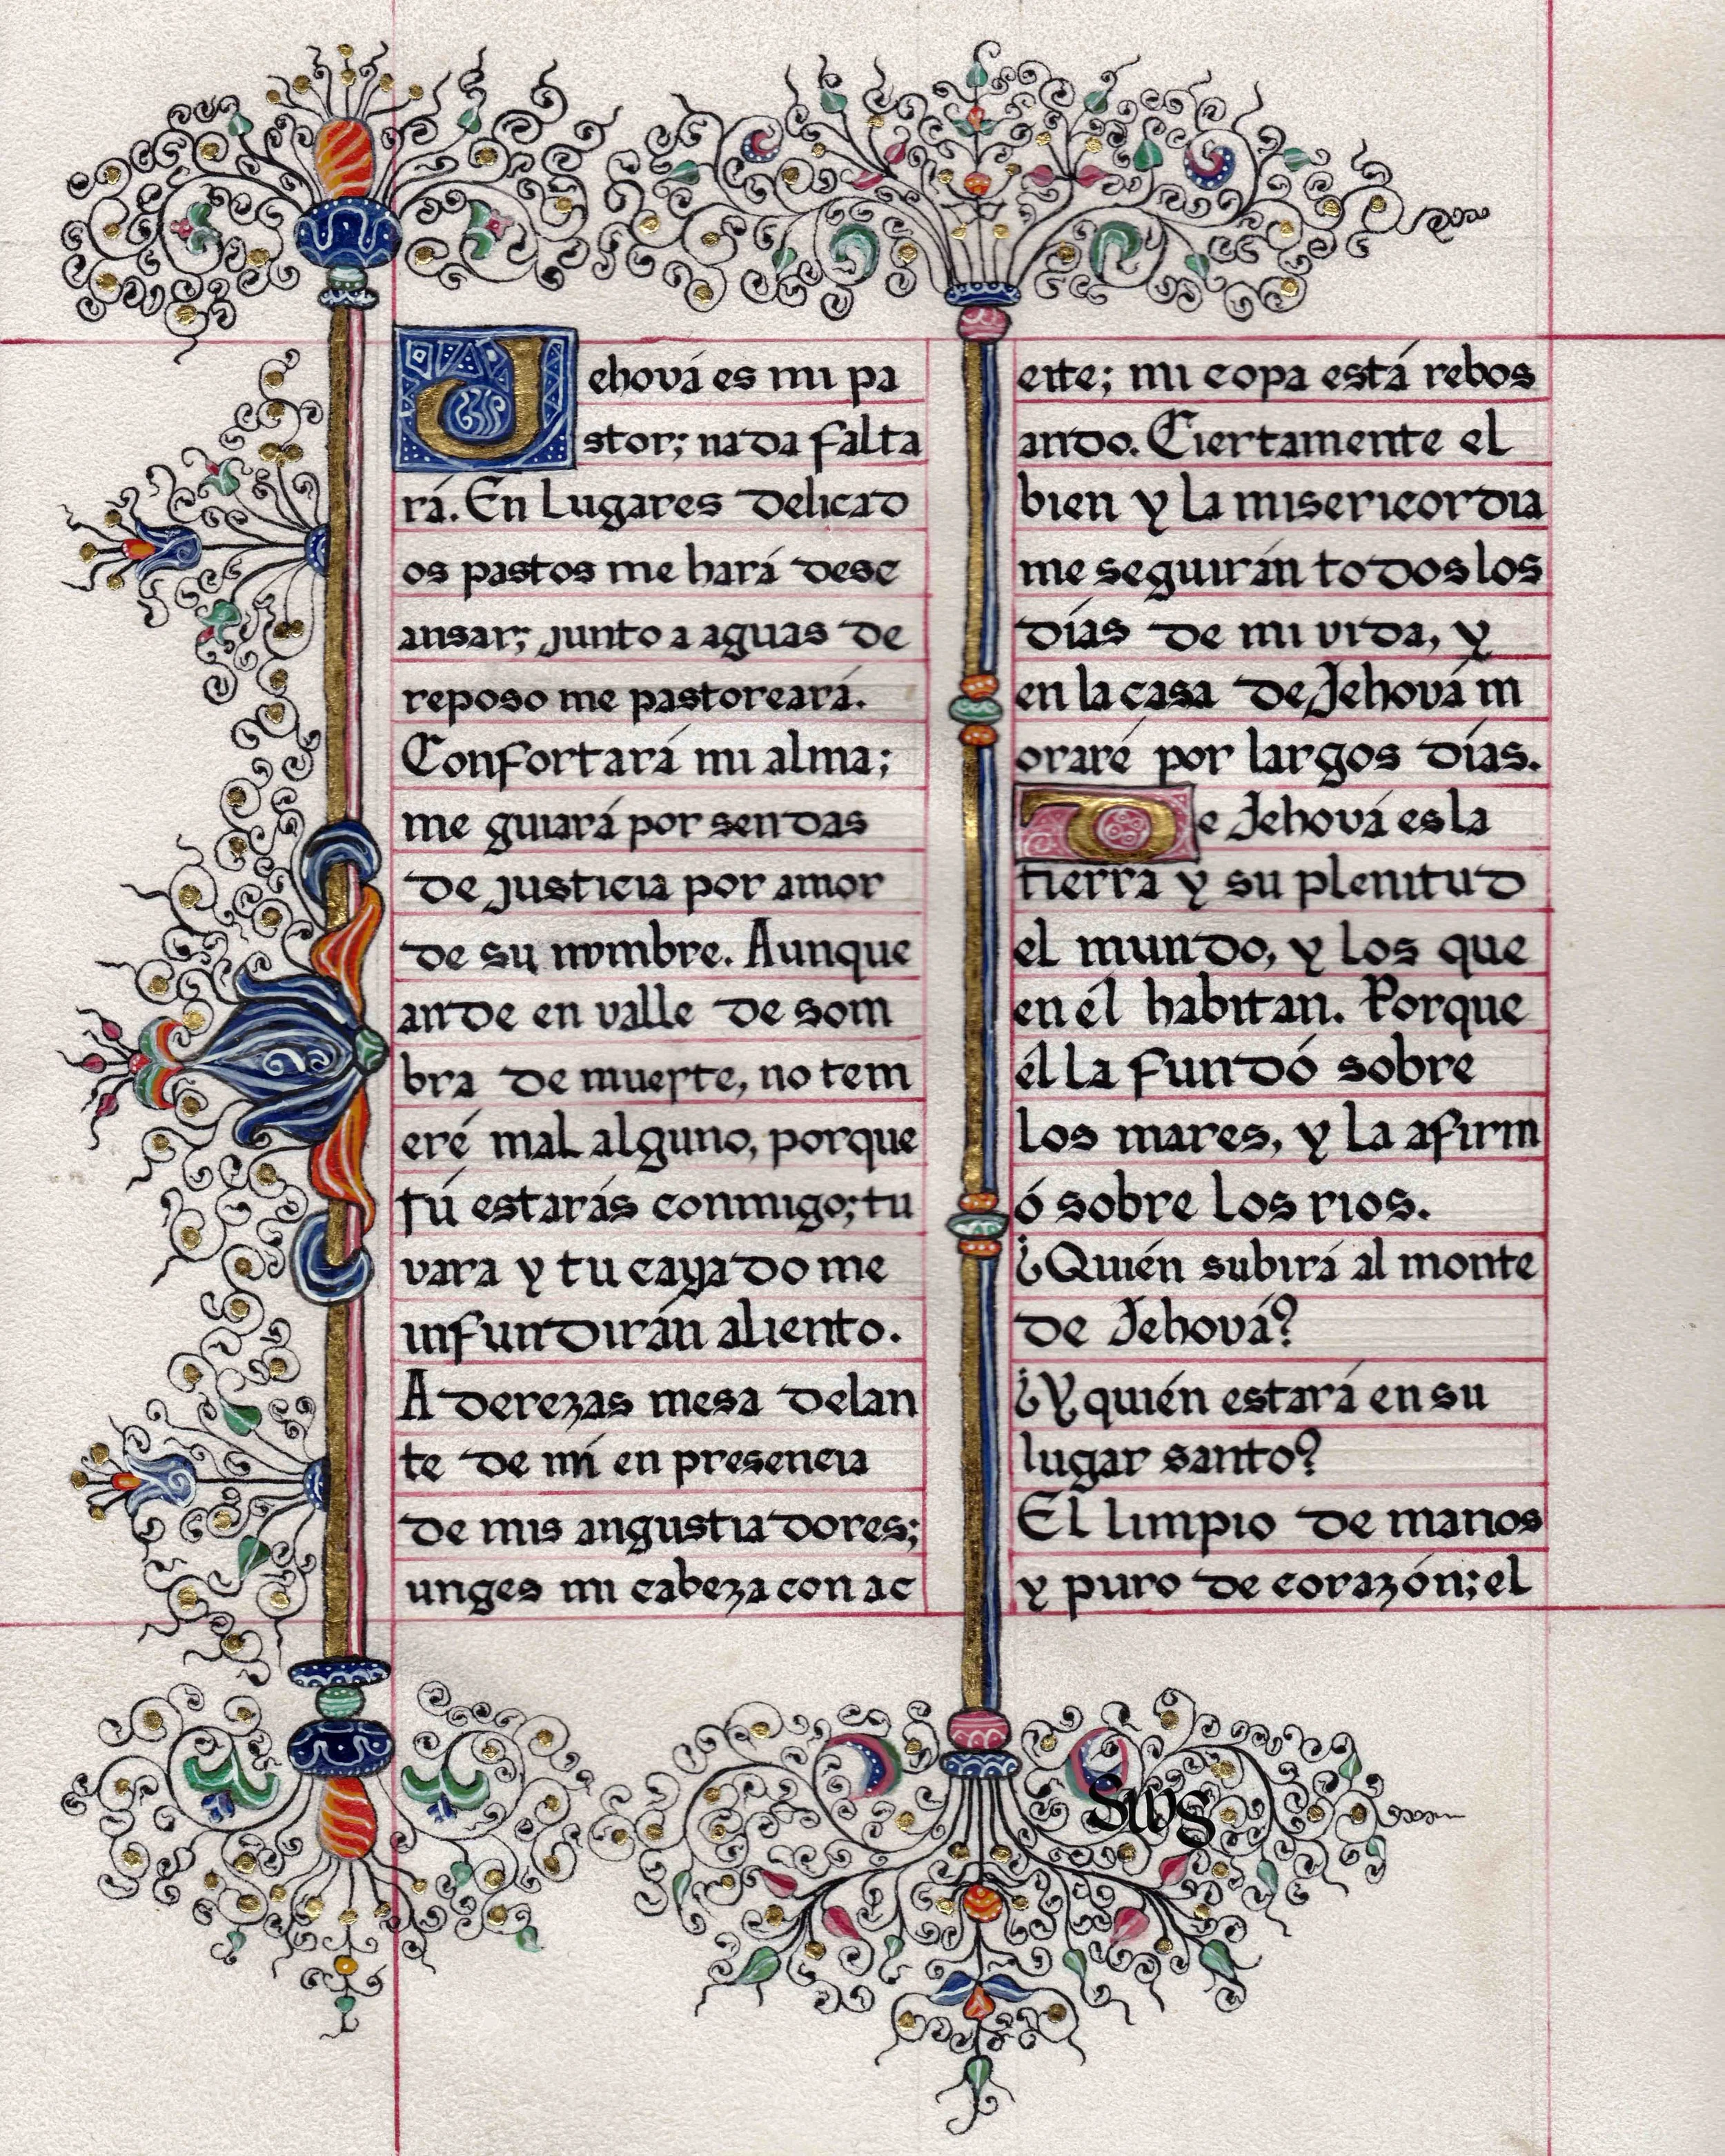 Jehová es mi pa
stor; nada falta
rá. En lugares delicad
os pastos me hará desc
ansar; junto a aguas de
reposo me pastoreará.
Confortará mi alma;
me guiará por sendas
de justicia por amor
de su nombre. Aunque
ande en valle de som
bra de muerte, no tem
eré mal alguno, porque
tú estarás conmigo; tu
vara y tu cayado me
infundirán aliento.
Aderezas mesa delan
te de mí en presencia
de mis angustiadores;
unges mi cabeza con ac
eite; mi copa está rebos
ando. Ciertamente el
bien y la misericordia
me seguirán todos los
días de mi vida, y
en la casa de Jehová m
oraré por largos días.
De Jehová es la
tierra y su plenitud
el mundo, y los que
en él habitan. Porque
él la fundó sobre
los mares, y la afirm
ó sobre los rios.
¿Quién subirá al monte
de Jehová?
¿Y quién estará en su
lugar santo?
El limpio de manos
y puro de corazón; el
Swg